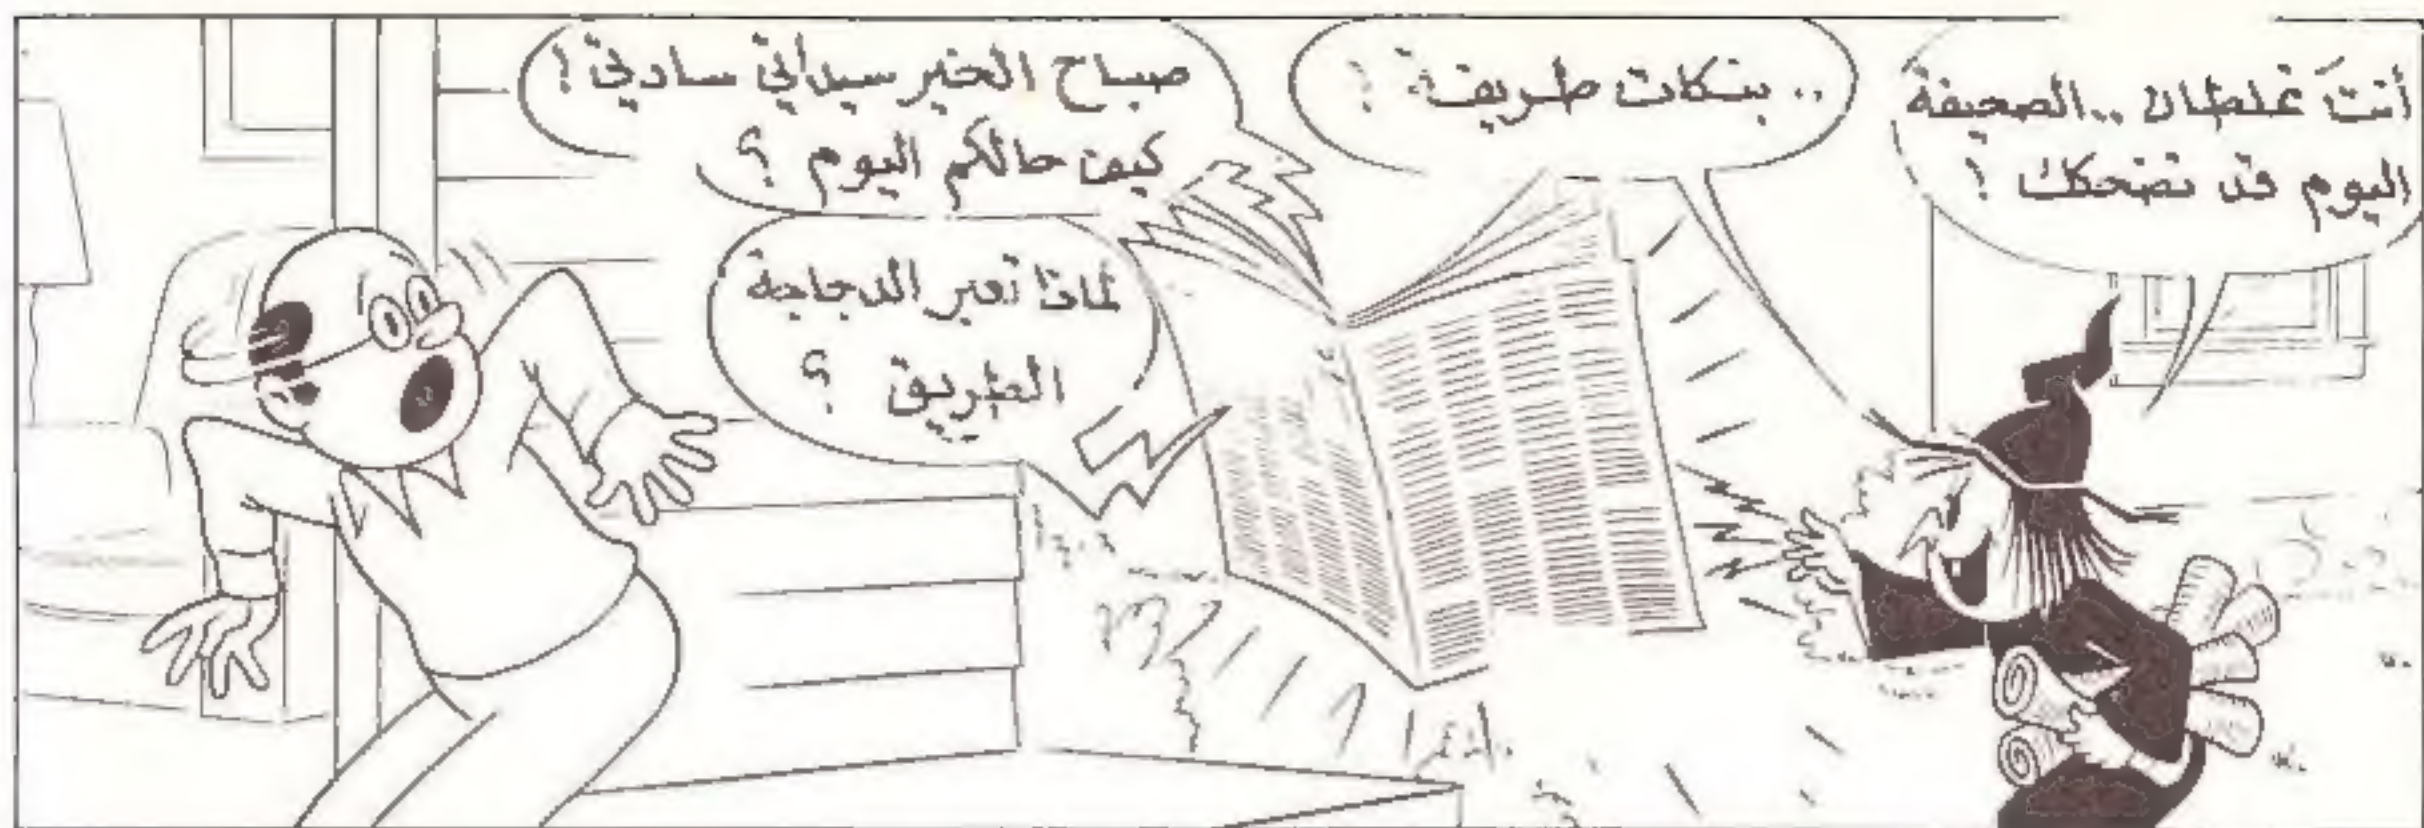 أنتَ غلطان .. الصحيفة
اليوم قد تضحكك !
.. بنكات طريفة !
صباح الخير سيداتي سادتي !
كيف حالكم اليوم ؟
لماذا تعبر الدجاجة
الطريق ؟